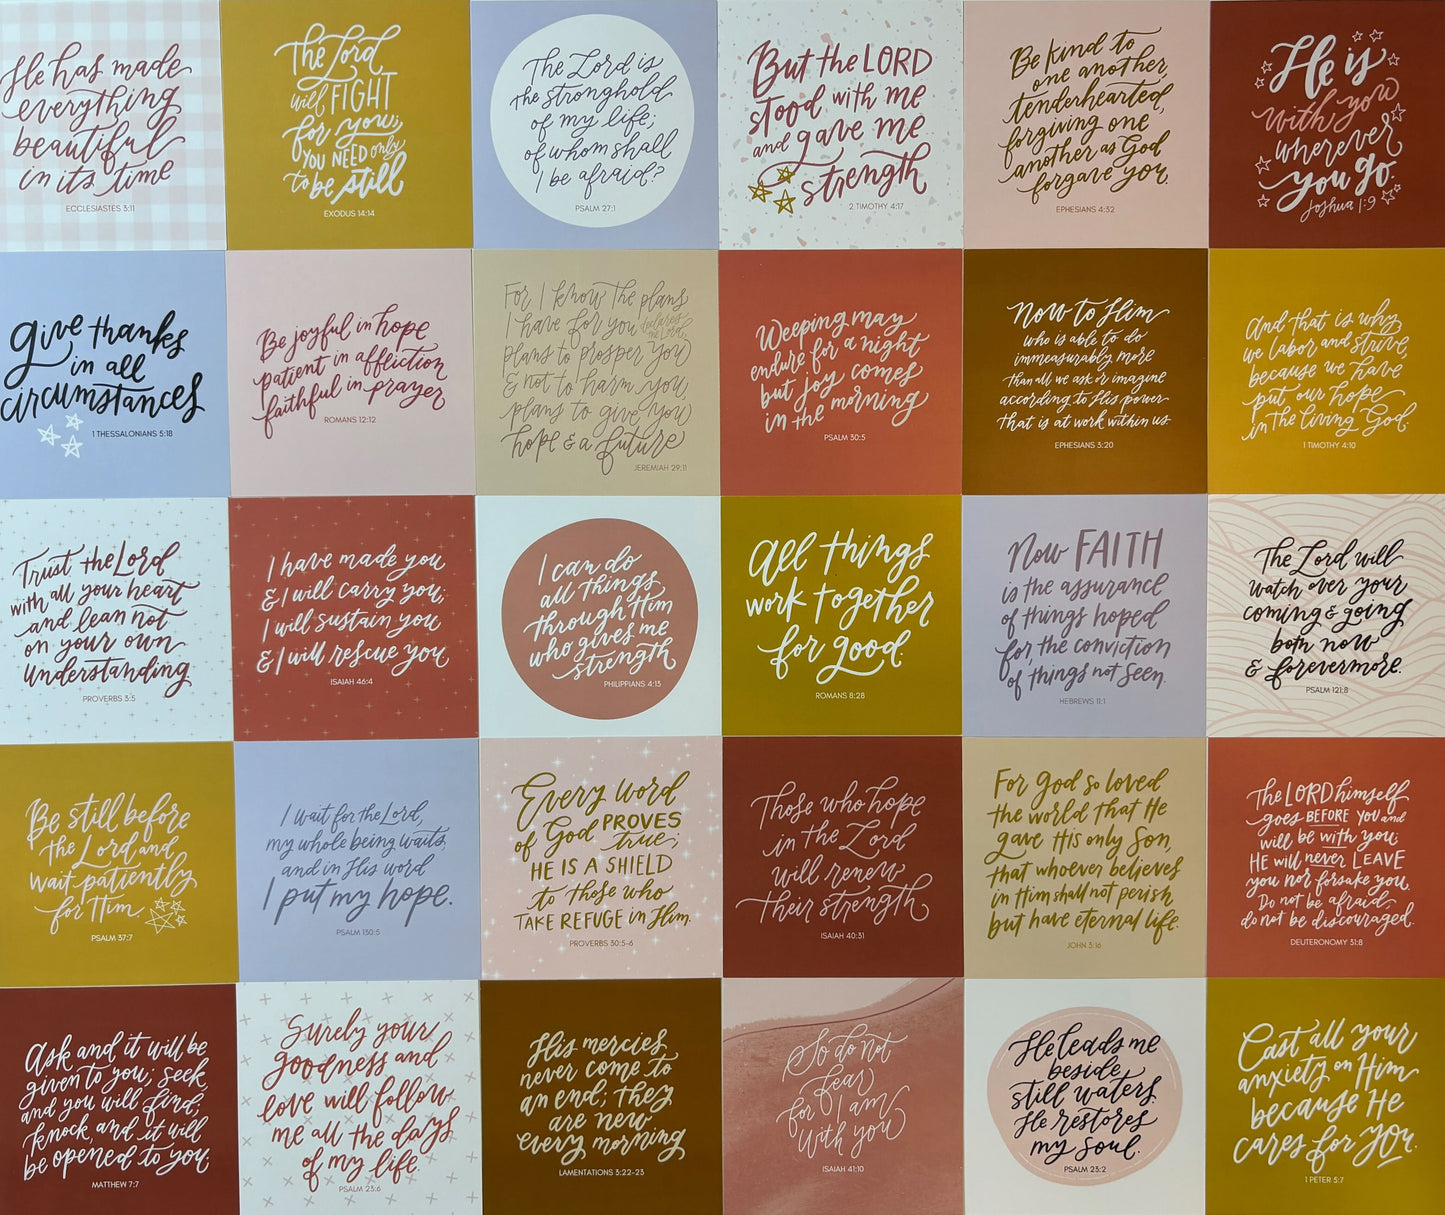 He has made
everything
beautiful
in its time
ECCLESIASTES 3:11
The Lord
will FIGHT
for you;
YOU NEED only
to be still
EXODUS 14:14
The Lord is
the stronghold
of my life;
of whom shall
I be afraid?
PSALM 27:1
But the LORD
stood with me
and gave me
strength
2 TIMOTHY 4:17
Be kind to
one another,
tenderhearted,
forgiving one
another as God
forgave you.
EPHESIANS 4:32
He is
with you
wherever
you go.
Joshua 1:9
give thanks
in all
circumstances
1 THESSALONIANS 5:18
Be joyful in hope
patient in affliction
faithful in prayer
ROMANS 12:12
For I know the plans
I have for you declares
the Lord,
plans to prosper you
& not to harm you,
plans to give you
hope & a future
JEREMIAH 29:11
Weeping may
endure for a night
but joy comes
in the morning
PSALM 30:5
Now to Him
who is able to do
immeasurably more
than all we ask or imagine
according to His power
that is at work within us
EPHESIANS 3:20
And that is why
we labor and strive,
because we have
put our hope
in the living God.
1 TIMOTHY 4:10
Trust the Lord
with all your heart
and lean not
on your own
understanding
PROVERBS 3:5
I have made you
& I will carry you;
I will sustain you
& I will rescue you
ISAIAH 46:4
I can do
all things
through Him
who gives me
strength
PHILIPPIANS 4:13
All things
work together
for good.
ROMANS 8:28
Now FAITH
is the assurance
of things hoped
for, the conviction
of things not seen.
HEBREWS 11:1
The Lord will
watch over your
coming & going
both now
& forevermore.
PSALM 121:8
Be still before
the Lord and
wait patiently
for Him.
PSALM 37:7
I wait for the Lord,
my whole being waits,
and in His word
I put my hope.
PSALM 130:5
Every word
of God PROVES
true;
HE IS A SHIELD
to those who
TAKE REFUGE in Him.
PROVERBS 30:5-6
Those who hope
in the Lord
will renew
their strength
ISAIAH 40:31
For God so loved
the world that He
gave His only Son,
that whoever believes
in Him shall not perish
but have eternal life.
JOHN 3:16
The LORD himself
goes BEFORE you and
will be with you;
HE will never LEAVE
you nor forsake you.
Do not be afraid;
do not be discouraged.
DEUTERONOMY 31:8
Ask and it will be
given to you; seek,
and you will find;
knock, and it will
be opened to you.
MATTHEW 7:7
Surely your
goodness and
love will follow
me all the days
of my life.
PSALM 23:6
His mercies
never come to
an end; they
are new
every morning
LAMENTATIONS 3:22-23
So do not
fear
for I am
with you
ISAIAH 41:10
He leads me
beside
still waters.
He restores
my soul.
PSALM 23:2
Cast all your
anxiety on Him
because He
cares for you.
1 PETER 5:7